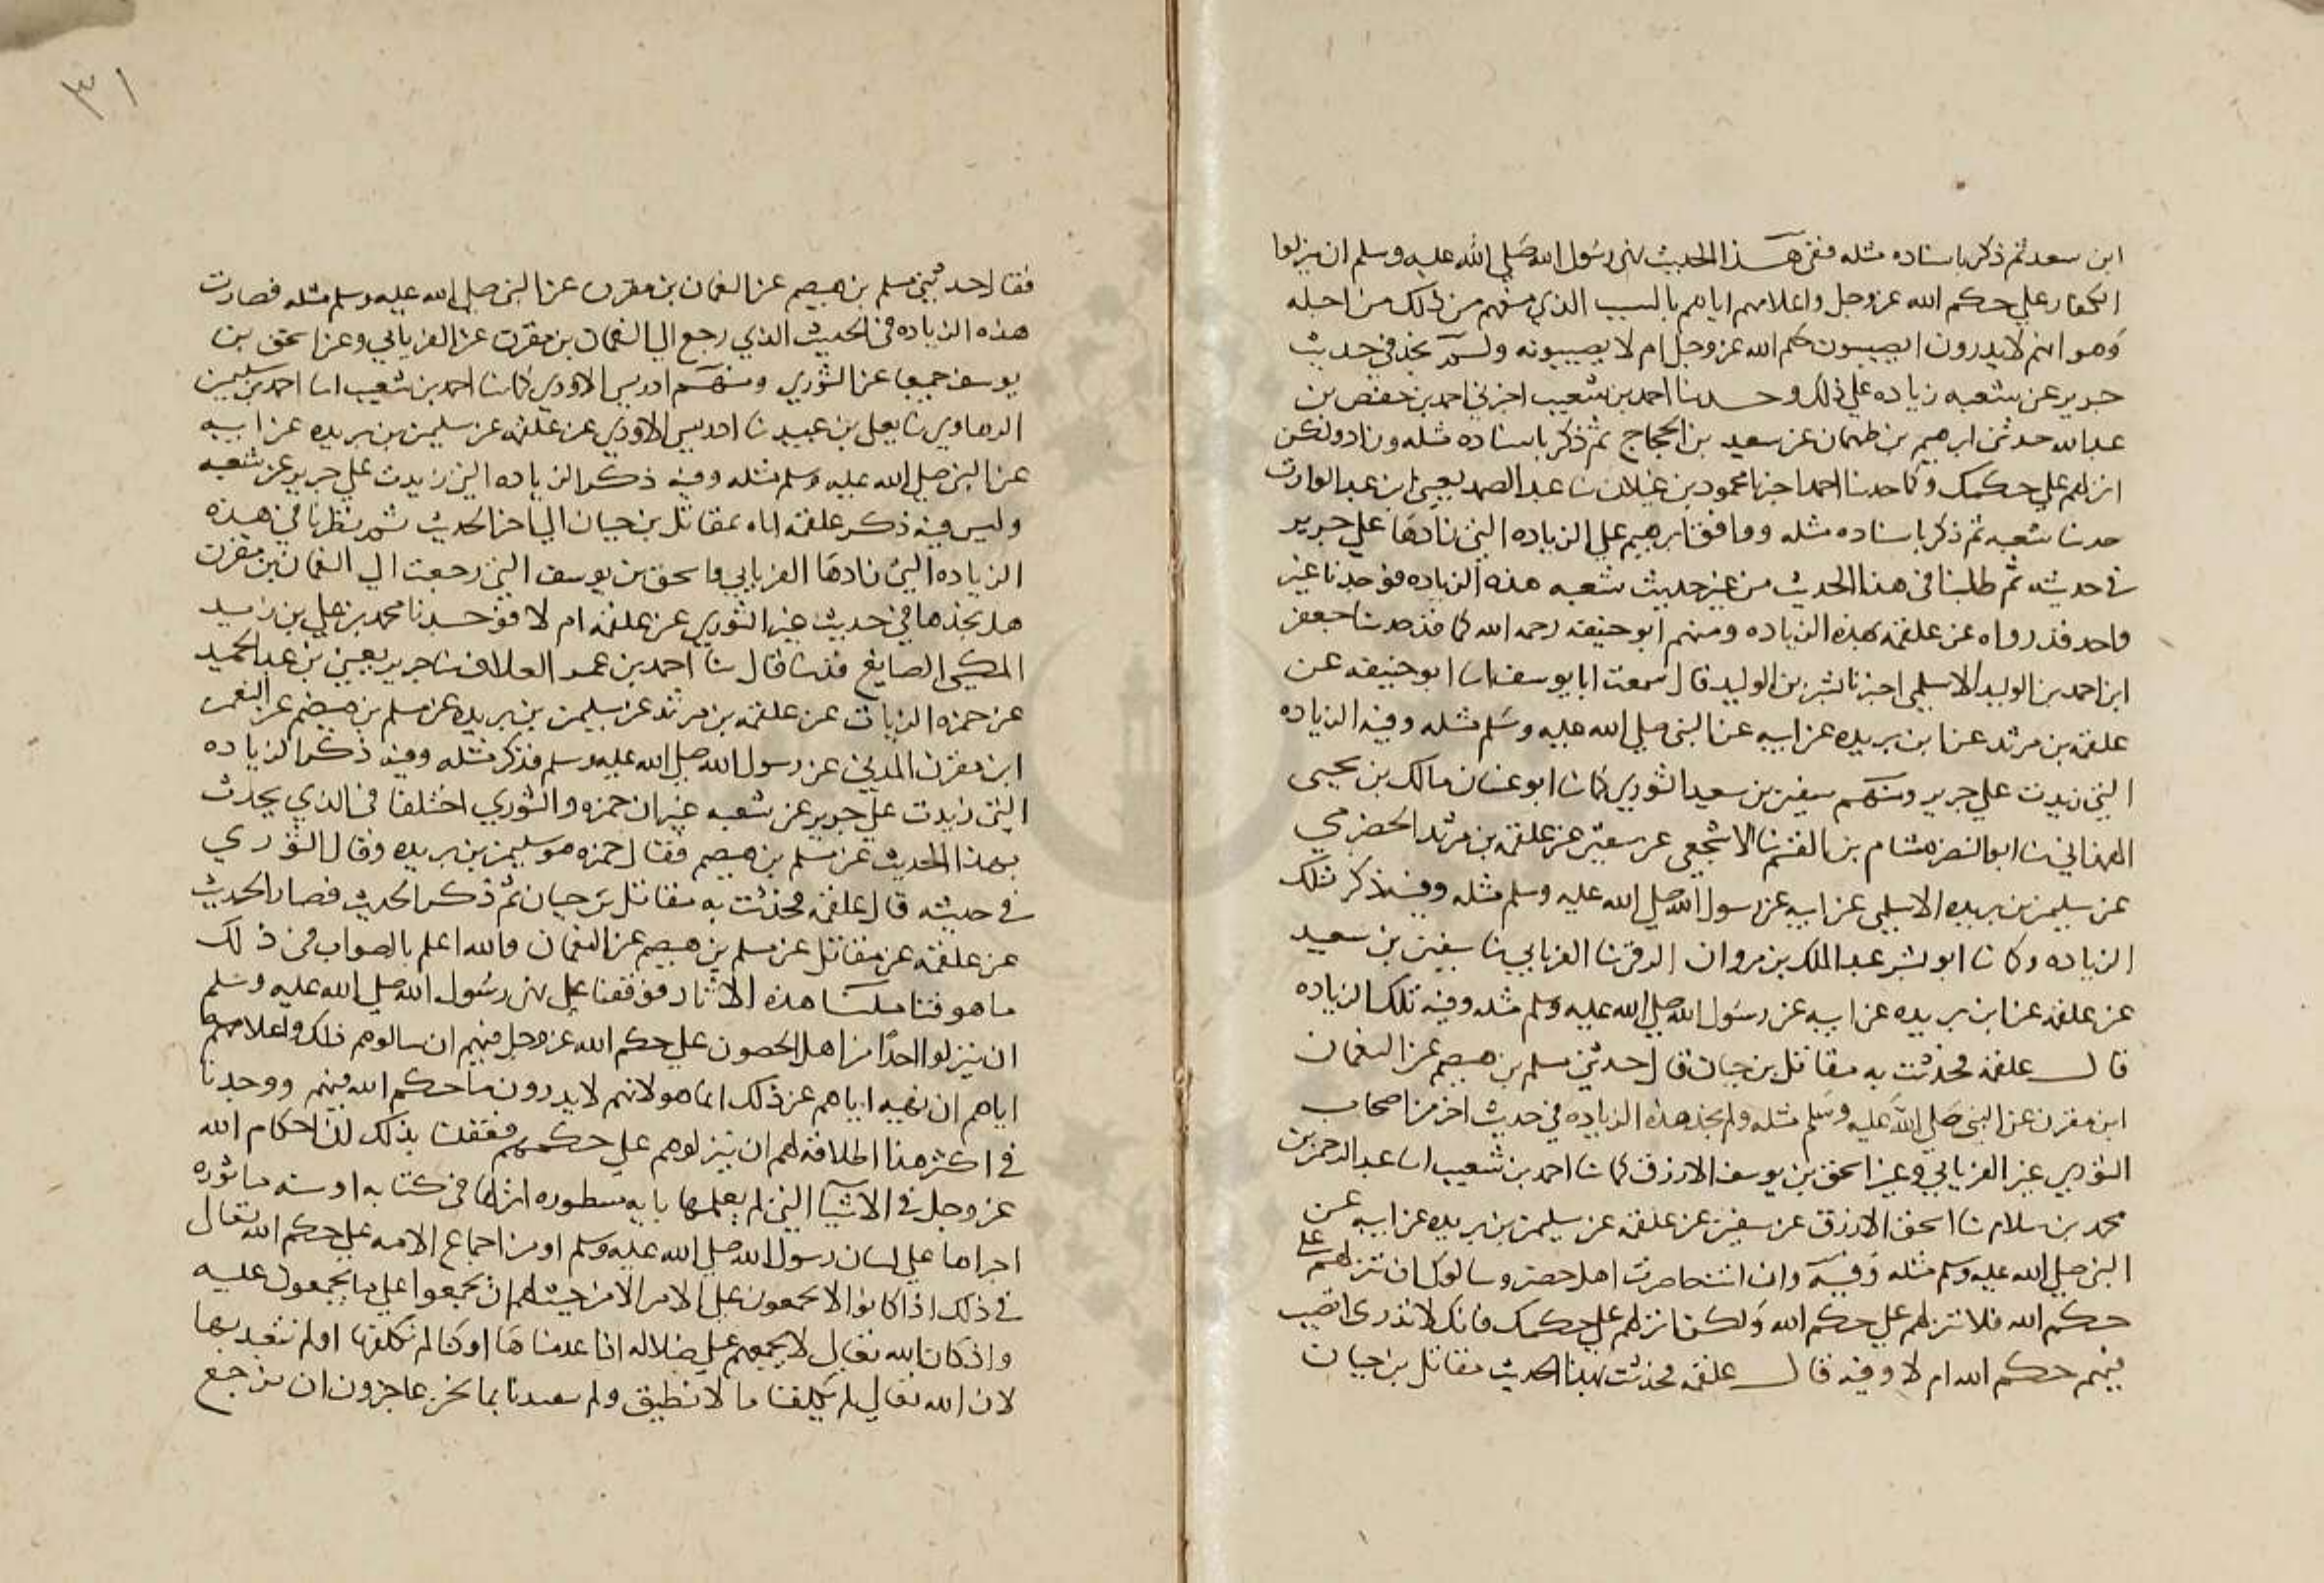 ابن سعد ثم ذكر باسناده مثله ففي هذا الحديث نهي رسول الله صلي الله عليه وسلم ان ينزلوا
الكفار علي حكم الله عزوجل واعلامهم اياهم بالسبب الذي منهم من ذلك من اجله
وهو انهم لا يدرون ايصيبون حكم الله عزوجل ام لا يصيبونه ولم نجد في حديث
جرير عن شعبه زياده علي ذلك وحدثنا احمد بن شعيب اخبرني احمد بن حفص بن
عبد الله حدثني ابرهيم بن طهمان عن سعيد بن الحجاج ثم ذكر باسناده مثله وزاد ولكن
انزلهم علي حكمك وكما حدثنا احمد اخبرنا محمود بن غيلان ثنا عبد الصمد يعني ابن عبد الوارث
حدثنا شعبه ثم ذكر باسناده مثله ووافق ابرهيم علي الزياده التي زادها علي جرير
في حديثه ثم طلبنا في هذا الحديث من غير حديث شعبه هذه الزياده فوجدنا غير
واحد قد رواه عن علقمه بهذه الزياده ومنهم ابو حنيفه رحمه الله كما قد حدثنا جعفر
ابن احمد بن الوليد الاسلمي اخبرنا بشر بن الوليد قال سمعت ابا يوسف انا ابو حنيفه عن
علقمه بن مرثد عن ابن بريده عن ابيه عن النبي صلي الله عليه وسلم مثله وفيه الزياده
التي زيدت علي جرير ومنهم سفين بن سعيد الثوري كما ثنا ابو غسان مالك بن يحيى
الهمداني ثنا ابو النضر هشام بن القسم ثنا الاشجعي عن سفين عن علقمه بن مرثد الحضرمي
عن سليمن بن بريده الاسلمي عن ابيه عن رسول الله صلي الله عليه وسلم مثله وفيه ذكر تلك
الزياده وكما ثنا ابو بشر عبد الملك بن مروان الرقي ثنا الفريابي ثنا سفين بن سعيد
عن علقمه عن ابن بريده عن ابيه عن رسول الله صلي الله عليه وسلم مثله وفيه تلك الزياده
قال علقمه فحدثت به مقاتل بن حيان قال حدثني مسلم بن هيصم عن النعمان
ابن مقرن عن النبي صلي الله عليه وسلم مثله ولم نجد هذه الزياده في حديث احد من اصحاب
الثوري غير الفريابي وغير اسحق بن يوسف الازرق كما ثنا احمد بن شعيب انا عبد الرحمن بن
محمد بن سلام ثنا اسحق الازرق عن سفين عن علقمه عن سليمن بن بريده عن ابيه عن
النبي صلي الله عليه وسلم مثله وفيه وان انت حاصرت اهل حصن وسالوك ان تنزلهم علي
حكم الله فلا تنزلهم علي حكم الله ولكن انزلهم علي حكمك فانك لا تدري اتصيب
فيهم حكم الله ام لا وفيه قال علقمه فحدثت بهذا الحديث مقاتل بن حيان
٣١
فقال حدثني مسلم بن هيصم عن النعمان بن مقرن عن النبي صلي الله عليه وسلم مثله فصارت
هذه الزياده في الحديث الذي رجع الي النعمان بن مقرن عن الفريابي وعن اسحق بن
يوسف جميعا عن الثوري ومنهم ادريس الاودي كما ثنا احمد بن شعيب انا احمد بن سليمن
الرهاوي ثنا يعلي بن عبيد ثنا ادريس الاودي عن علقمه عن سليمن بن بريده عن ابيه
عن النبي صلي الله عليه وسلم مثله وفيه ذكر الزياده التي زيدت علي جرير عن شعبه
وليس فيه ذكر علقمه اياه لمقاتل بن حيان الي اخر الحديث ثم نظرنا في هذه
الزياده التي زادها الفريابي واسحق بن يوسف التي رجعت الي النعمان بن مقرن
هل نجدها في حديث غير الثوري عن علقمه ام لا فوجدنا محمد بن علي بن زيد
المكي الصايغ قد ثنا قال ثنا احمد بن عمر العلاف ثنا جرير يعني بن عبد الحميد
عن حمزه الزيات عن علقمه بن مرثد عن سليمن بن بريده عن مسلم بن هيصم عن النعمن
ابن مقرن المدني عن رسول الله صلي الله عليه وسلم فذكر مثله وفيه ذكر الزياده
التي زيدت علي جرير عن شعبه غير ان حمزه والثوري اختلفا في الذي يحدث
بهذا الحديث عن مسلم بن هيصم فقال حمزه هو سليمن بن بريده وقال الثوري
في حديثه قال علقمه فحدثت به مقاتل بن حيان ثم ذكر الحديث فصار الحديث
عن علقمه عن مقاتل عن مسلم بن هيصم عن النعمان والله اعلم بالصواب في ذلك
ما هو فتاملنا هذه الاثار فوقفنا علي نهي رسول الله صلي الله عليه وسلم
ان ينزلوا احدًا من اهل الحصون علي حكم الله عزوجل فيهم ان سالوهم ذلك واعلامهم
اياهم ان نهيه اياهم عن ذلك انما هو لانهم لا يدرون ما حكم الله فيهم ووجدنا
في اكثر هذا اطلاقه لهم ان ينزلوهم علي حكمهم فعقلنا بذلك ان احكام الله
عز وجل في الاشيا التي لم يعلمها بايه مسطوره انزلها في كتابه او سنه ماثوره
اجراها علي لسان رسول الله صلي الله عليه وسلم او من اجماع الامه علي حكم الله تعال
في ذلك اذا كانوا لا يجمعون علي الامر الا من حيث لهم ان يجمعوا علي ما يجمعون عليه
واذ كان الله تعالي لا يجمعهم علي ضلاله انا عدمناها او كنا لم نكلفها او لم نتعبد بها
لان الله تعالي لم يكلفنا ما لا نطيق ولم يتعبدنا بما نحن عاجزون ان نرجع